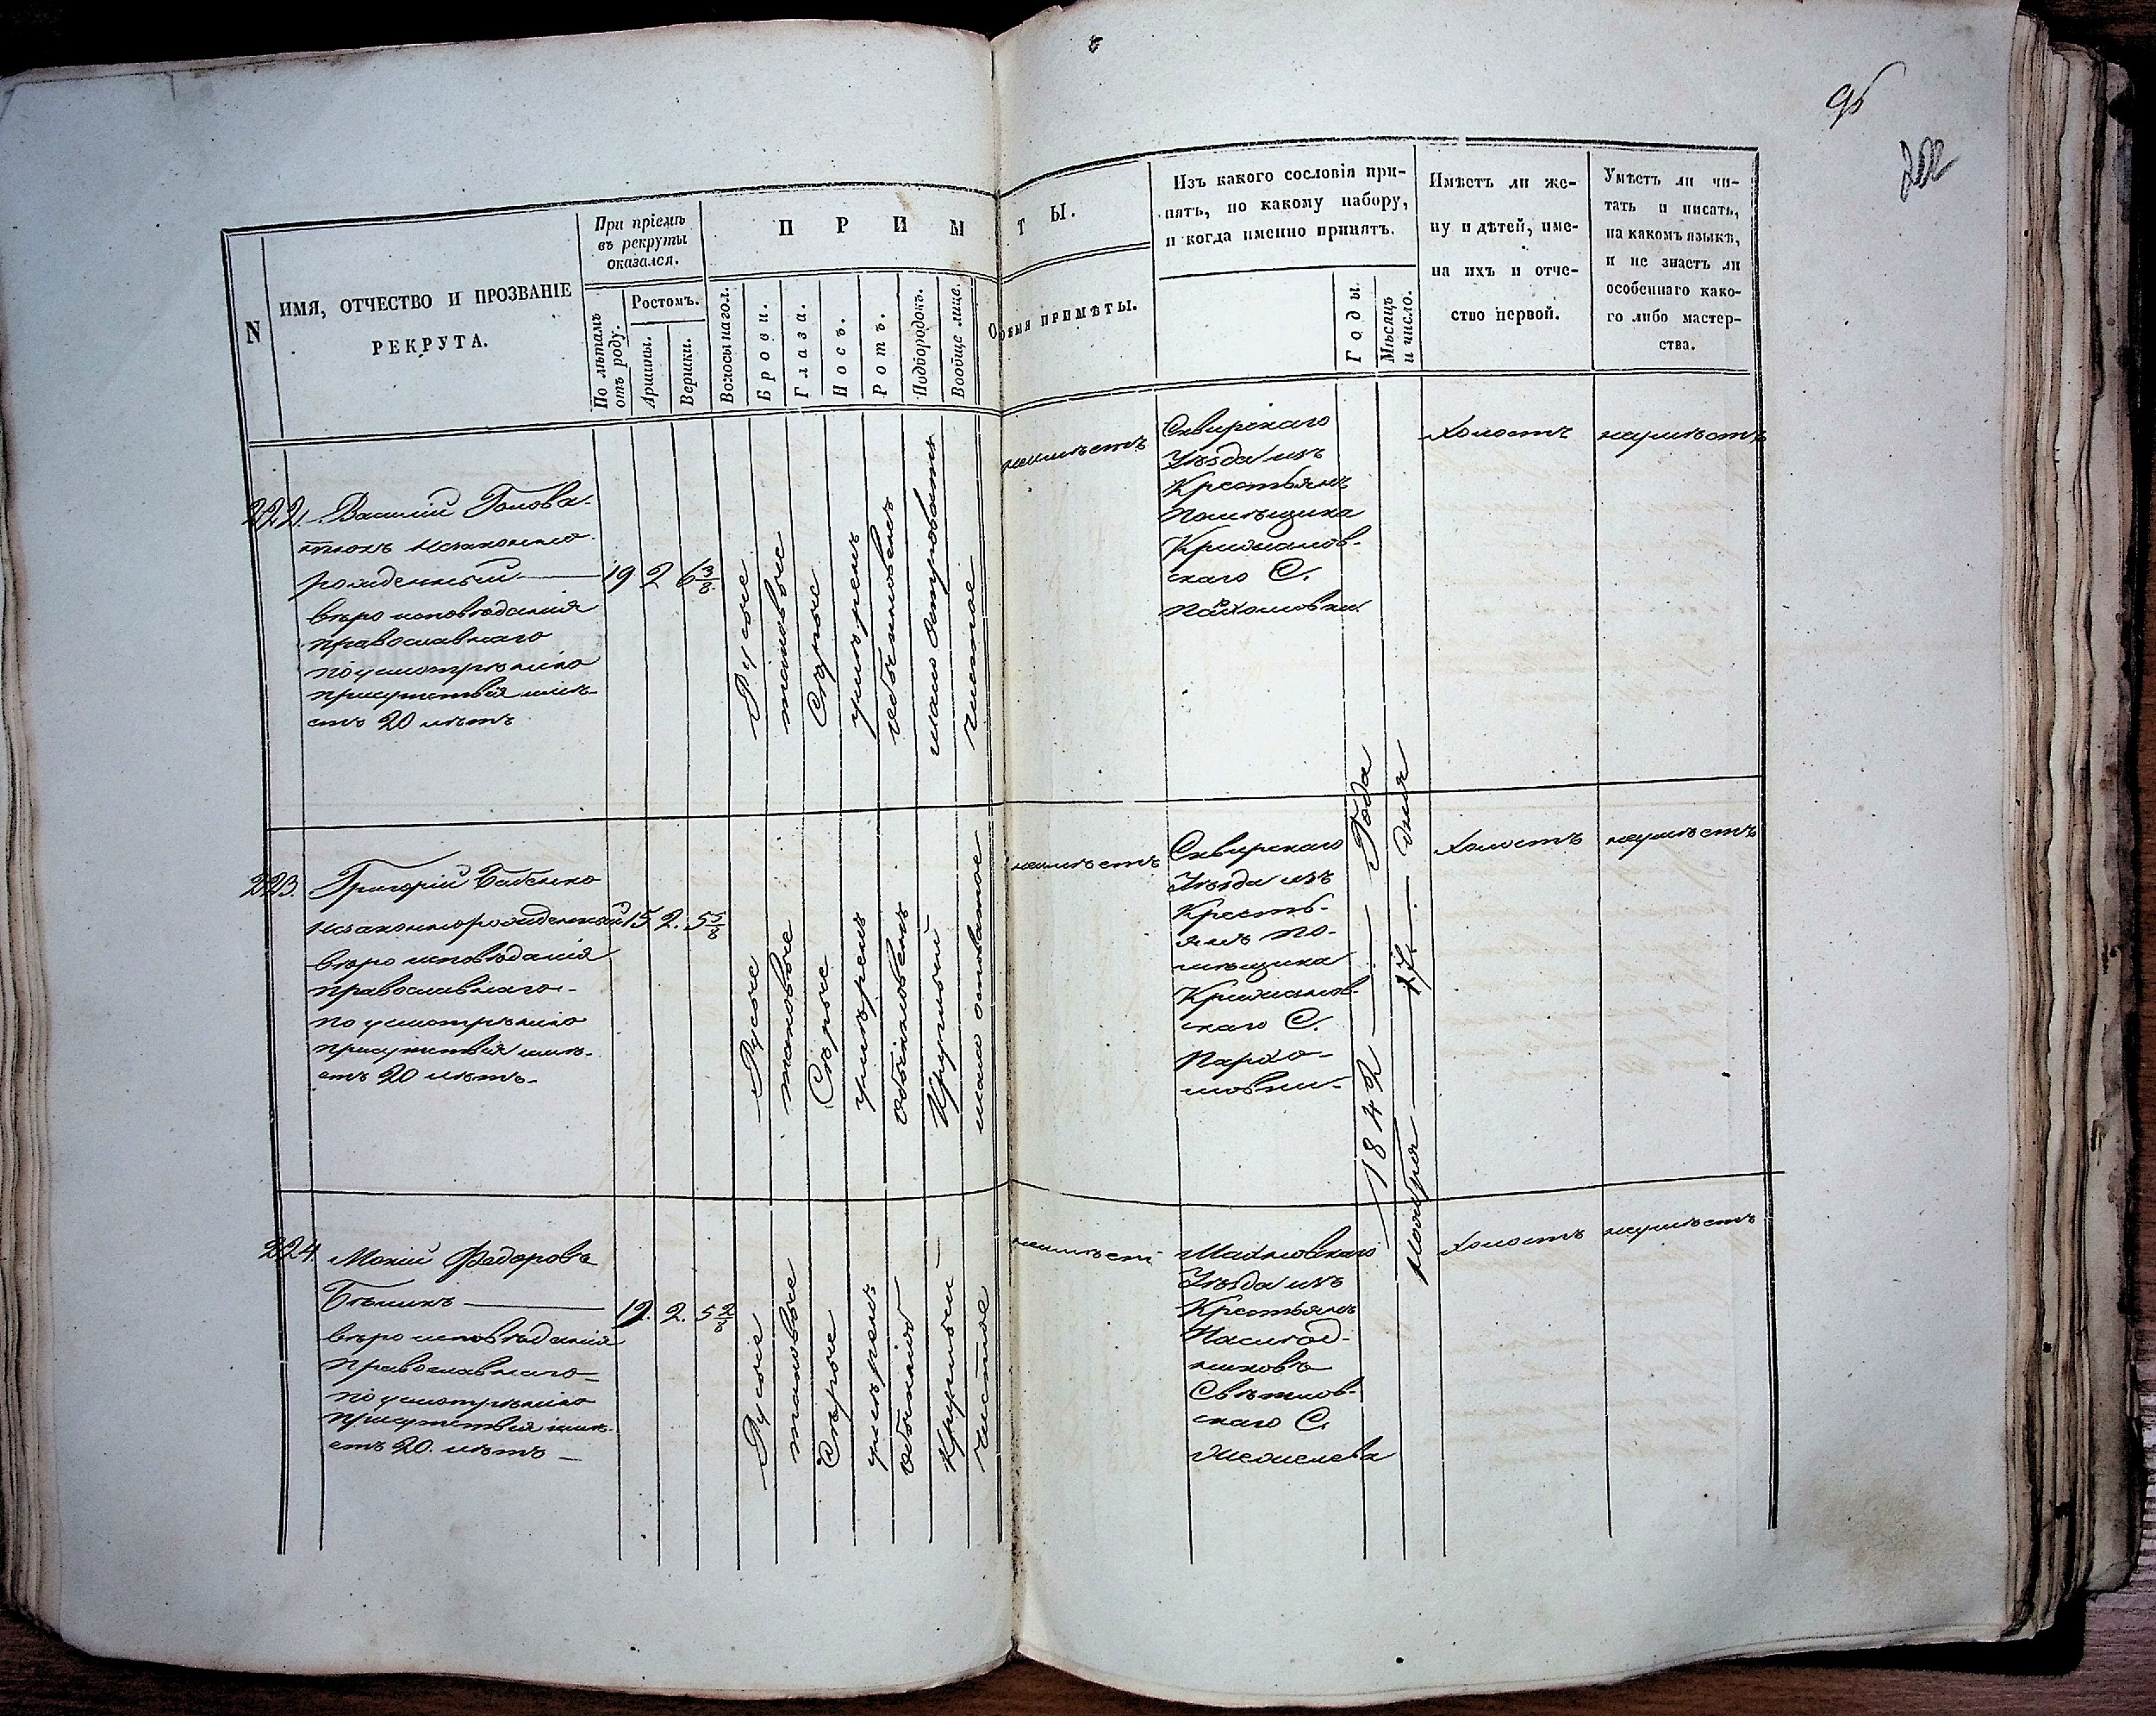 95
202
N
ИМЯ, ОТЧЕСТВО И ПРОЗВАНІЕ
РЕКРУТА.
При пріемѣ
въ рекруты
оказался.
По лѣтамъ
отъ роду.
Ростомъ.
Аршины.
Вершки.
ПРИМ
ТЫ.
Волосы на гол.
Брови.
Глаза.
Носъ.
Ротъ.
Подбородокъ.
Вообще лице.
ПРИМѢТЫ.
Изъ какого сословія при-
нятъ, по какому набору,
и когда именно принятъ.
Годы.
Мѣсяцъ
и число.
Имѣетъ ли же-
ну и дѣтей, име-
на ихъ и отче-
ство первой.
Умѣетъ ли чи-
тать и писать,
на какомъ языкѣ,
и не знаетъ ли
особеннаго како-
го либо мастер-
ства.
222. Василій Голова-
тюкъ незаконно
рожденный
вѣро исповѣданія
православнаго
по усмотрѣнію
присутствія имѣ-
етъ 20 лѣтъ
19 2 6 3/8
Русые
таковые
Сѣрые
умѣренъ
обыкновенъ
мало островатъ
чистое
неимѣетъ
Сквирскаго
Уѣзда изъ
Крестьянъ
Помѣщика
Крижанов-
скаго С.
Пархомовки
Холостъ
неумѣетъ
223. Григорій Бабенко
незаконнорожденный
вѣро исповѣданія
православнаго
по усмотрѣнію
присутствія имѣ-
етъ 20 лѣтъ
15 2. 5 5/8
Русые
таковые
Сѣрые
умѣренъ
обыкновенъ
Круглый
мало осповатое
неимѣетъ
Сквирскаго
Уѣзда изъ
Кресть-
янъ по-
мѣщика
Крижанов-
скаго С.
Пархо-
мовки
1842 Года
Ноября 17 дня
Холостъ
неумѣетъ
224. Мокій Федоровъ
вѣро исповѣданія
православнаго
по усмотрѣнію
присутствія имѣ-
етъ 20. лѣтъ
19. 2. 5 2/8
Русые
таковые
Сѣрые
умѣренъ
Круглый
чистое
неимѣет
Уѣзда изъ
Крестьянъ
Наслѣд-
никовъ
скаго С.
Холостъ
неумѣетъ